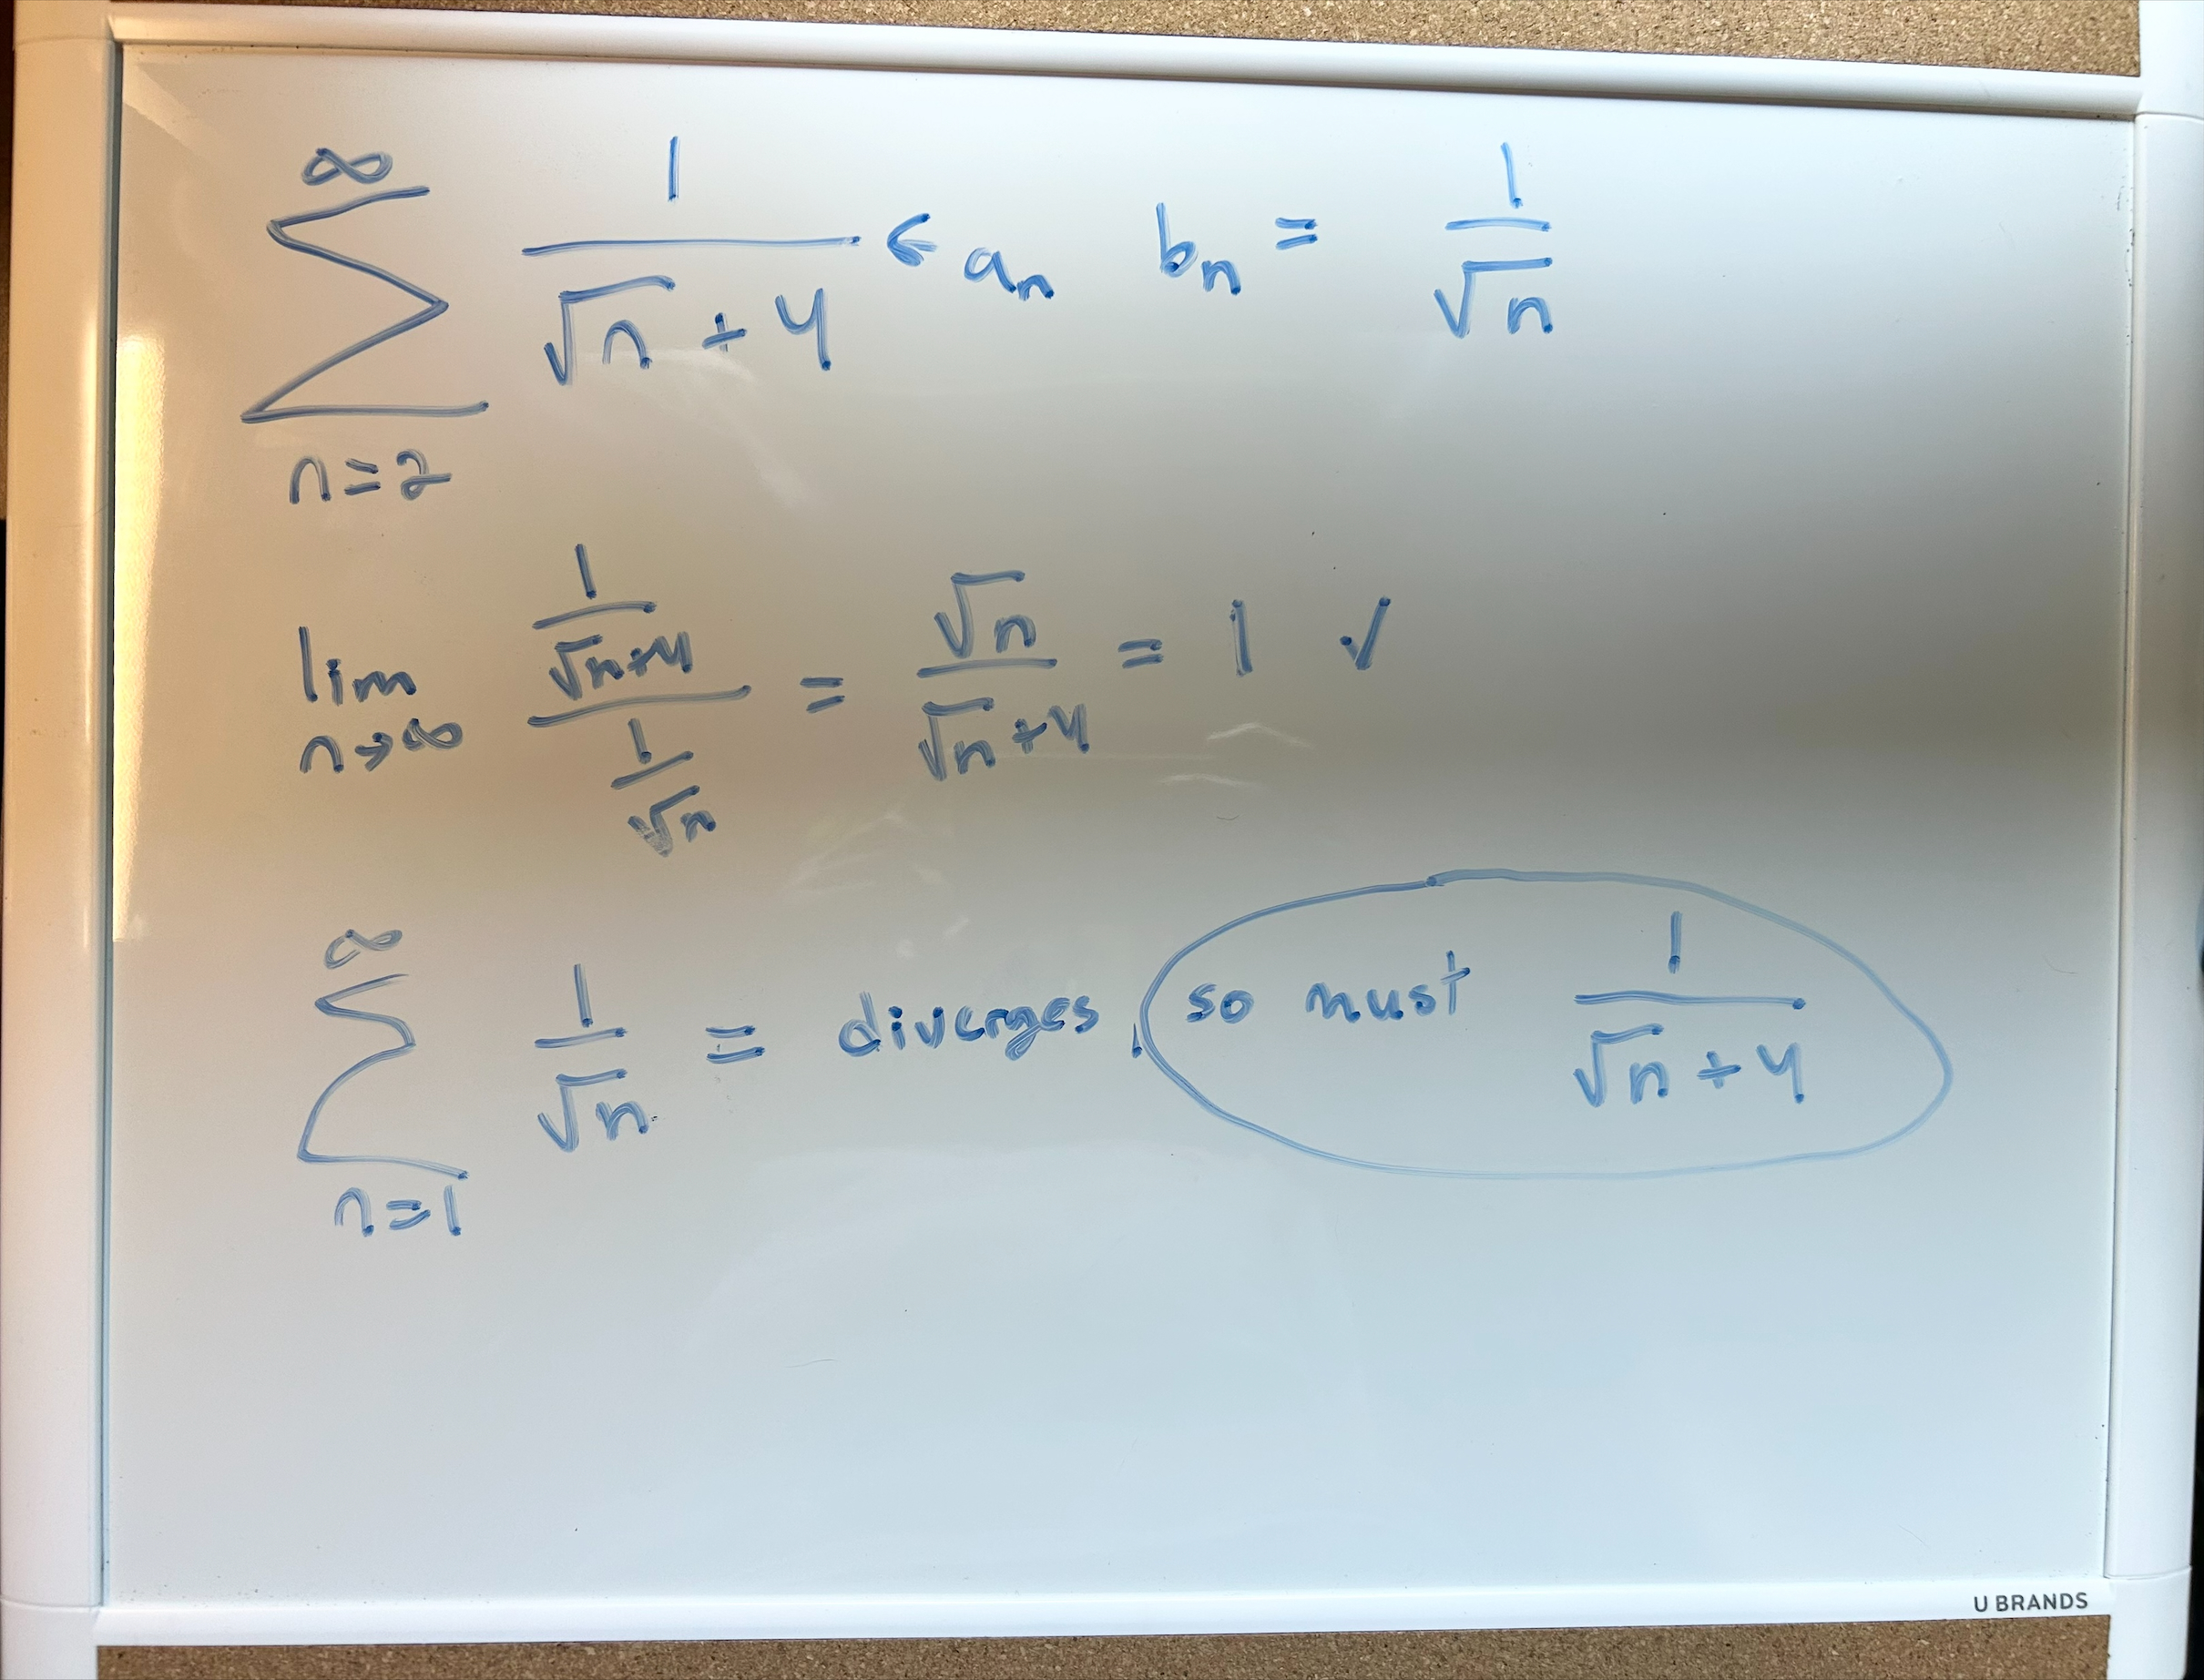 ∞
∑ 1/(√n + 4) ← aₙ bₙ = 1/√n
n=2
lim n→∞ (1/(√n+4))/(1/√n) = √n/(√n+4) = 1 ✓
∞
∑ 1/√n = diverges, so must 1/(√n + 4)
n=1
U BRANDS